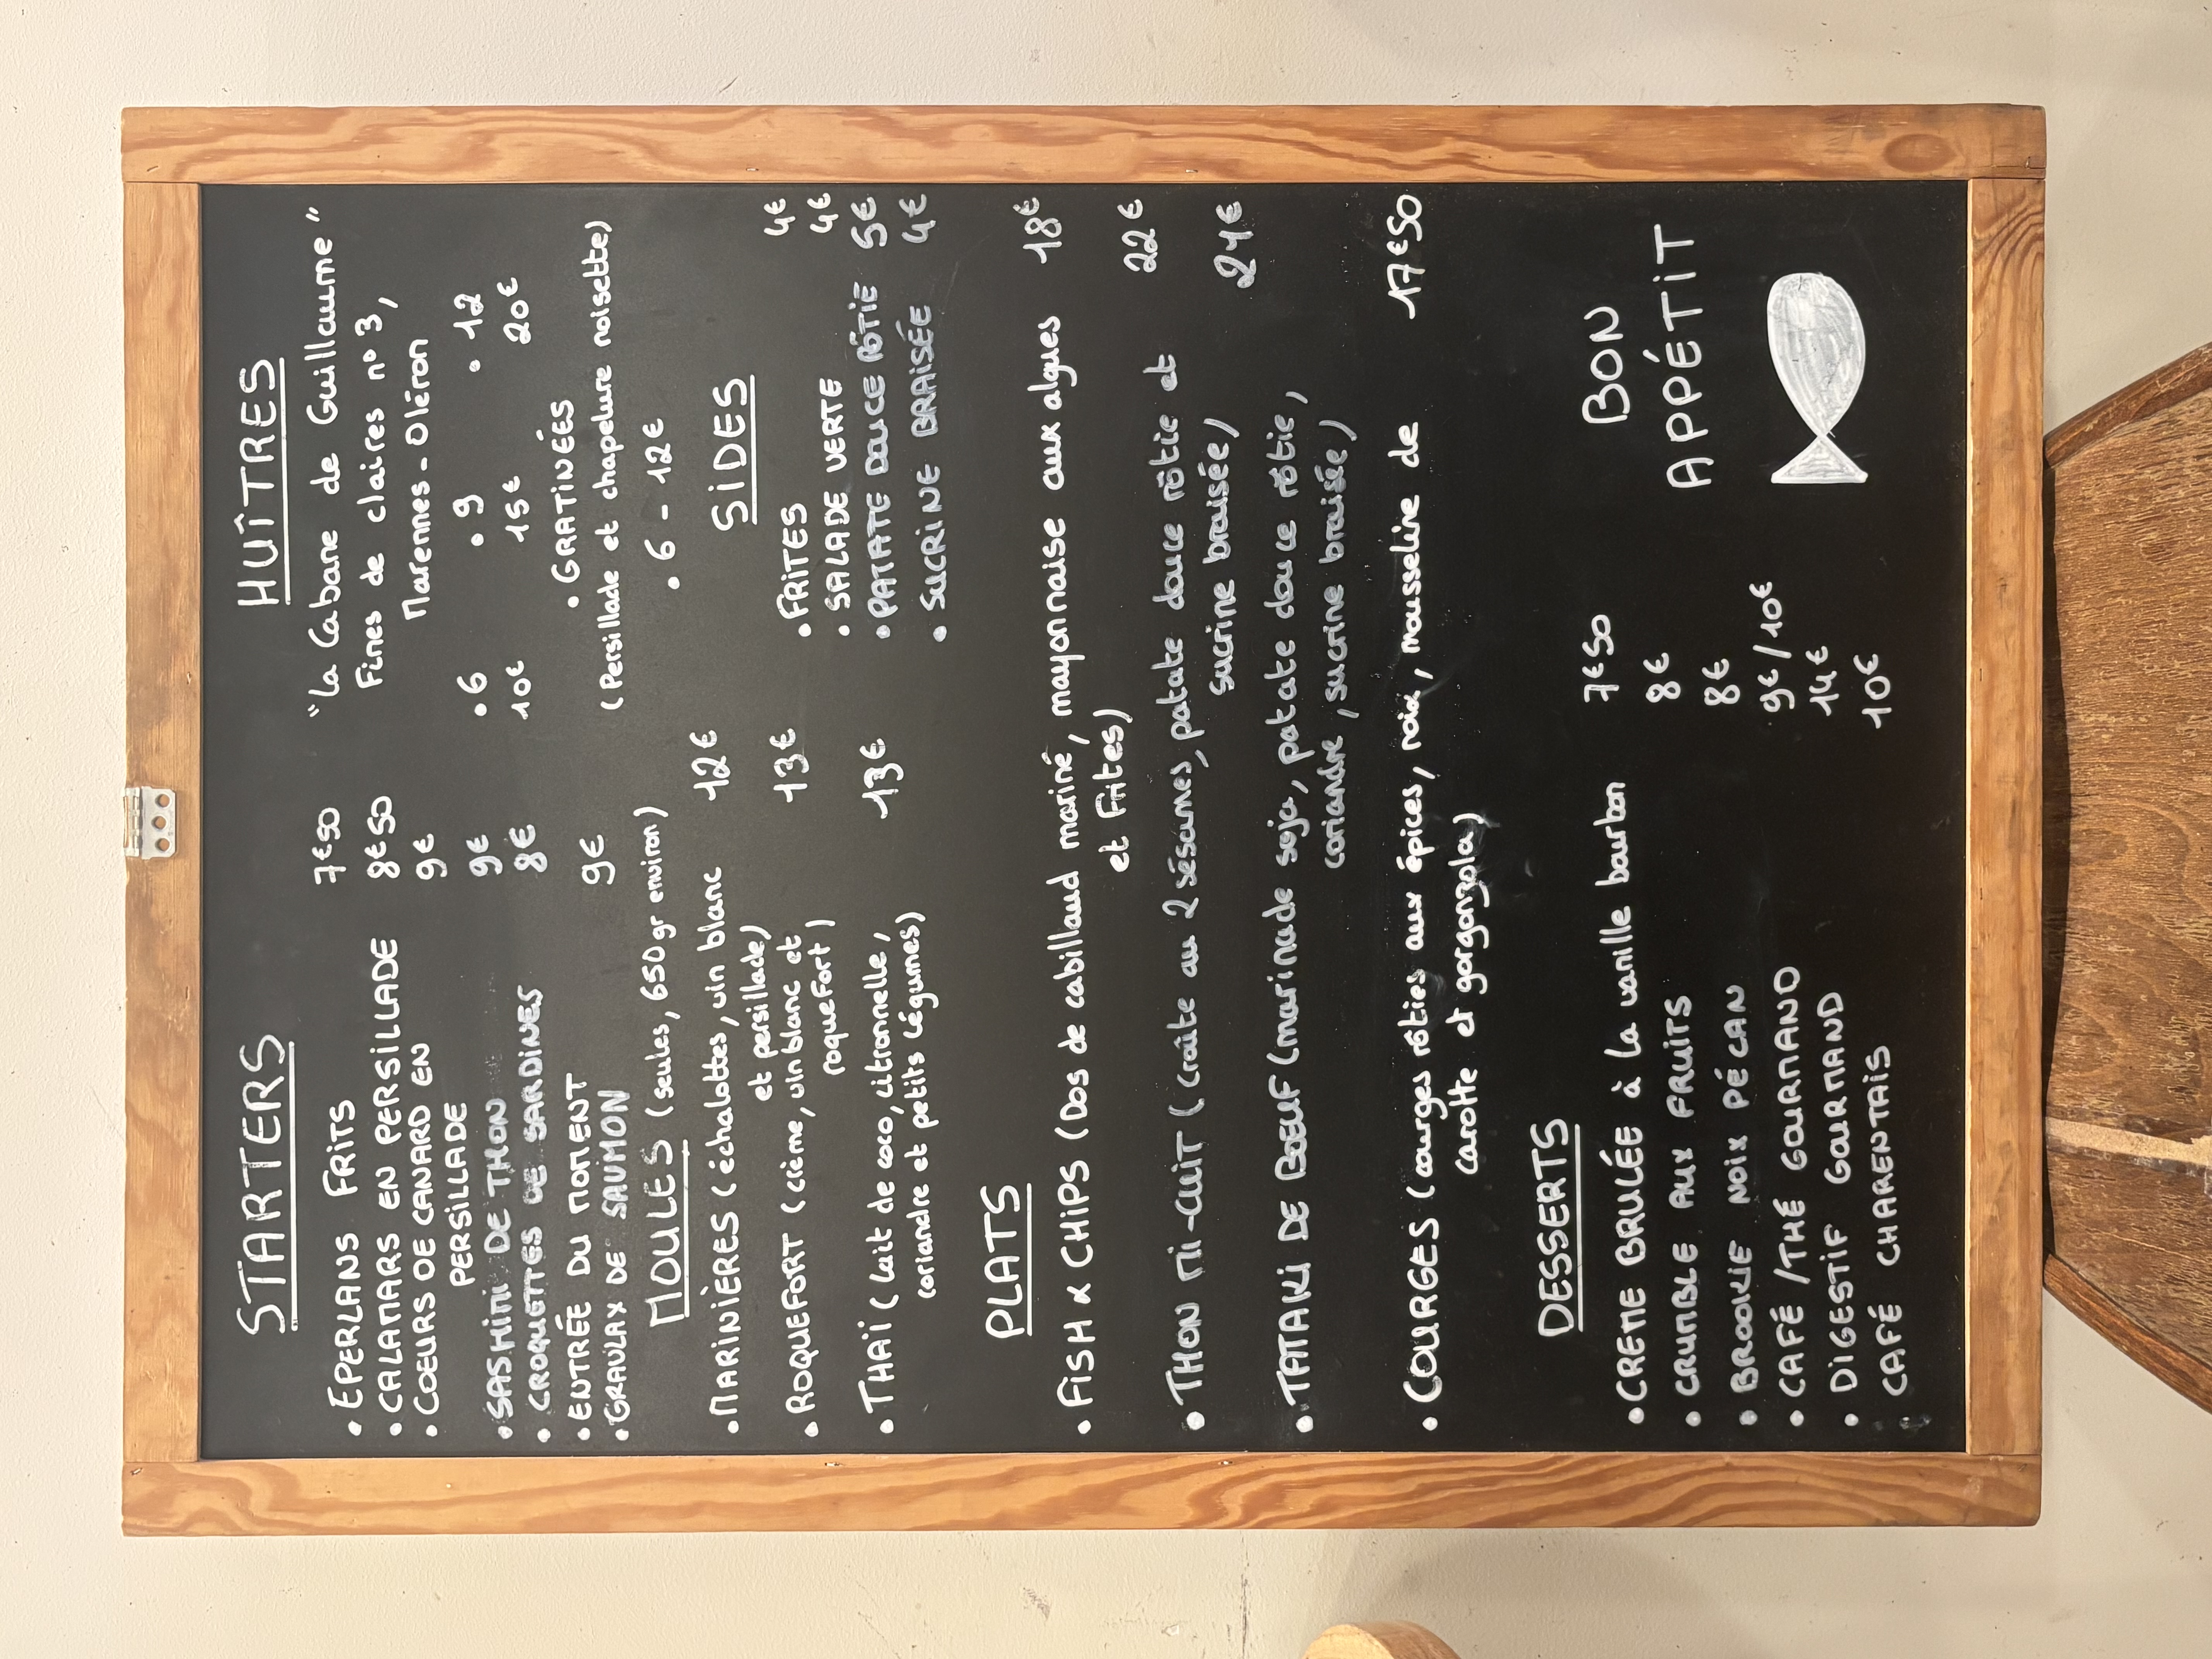 STARTERS
• EPERLANS FRITS 7€50
• CALAMARS EN PERSILLADE 8€50
• COEURS DE CANARD EN 9€
PERSILLADE
• SASHIMI DE THON 9€
• CROQUETTES DE SARDINES 8€
• ENTRÉE DU MOMENT
• GRAVLAX DE SAUMON 9€
HUÎTRES
"La Cabane de Guillaume"
Fines de claires n°3,
Marennes-Oléron
• 6 • 9 • 12
10€ 15€ 20€
• GRATINÉES
(Persillade et chapelure noisette)
• 6 - 12€
MOULES (seules, 650gr environ)
• MARINIÈRES (échalottes, vin blanc 12€
et persillade)
• ROQUEFORT (crème, vin blanc et 13€
roquefort)
• THAÏ (lait de coco, citronnelle, 13€
coriandre et petits légumes)
SIDES
• FRITES 4€
• SALADE VERTE 4€
• PATATE DOUCE RÔTIE 5€
• SUCRINE BRAISÉE 4€
PLATS
• FISH & CHIPS (Dos de cabillaud mariné, mayonnaise aux algues 18€
et Frites)
• THON MI-CUIT (croûte au 2 sésames, patate douce rôtie et 22€
sucrine braisée)
• TATAKI DE BOEUF (marinade soja, patate douce rôtie, 21€
coriandre, sucrine braisée)
• COURGES (courges rôties aux épices, noix, mousseline de 17€50
carotte et gorgonzola)
DESSERTS
• CREME BRULÉE à la vanille bourbon 7€50
• CRUMBLE AUX FRUITS 8€
• BROOKIE NOIX PÉCAN 8€
• CAFÉ/THÉ GOURMAND 9€/10€
• DIGESTIF GOURMAND 14€
• CAFÉ CHARENTAIS 10€
BON
APPÉTIT